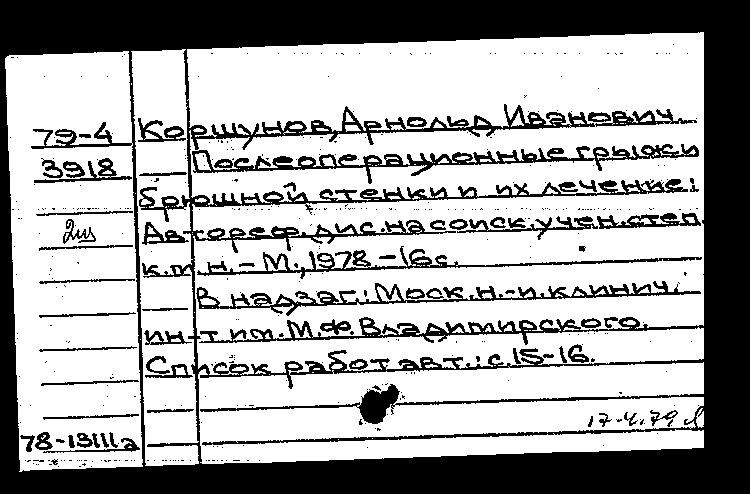 79-4 Коршунов, Арнольд Иванович.
3918 Послеоперационные грыжи
брюшной стенки и их лечение:
2из Автореф. дис. на соиск. учен. степ.
к.м.н. - М., 1978. - 16с.
В надзаг.: Моск. н.-и. клинич.
ин-т им. М.Ф. Владимирского.
Список работ авт.: с. 15-16.
17.4.79
78-13111а